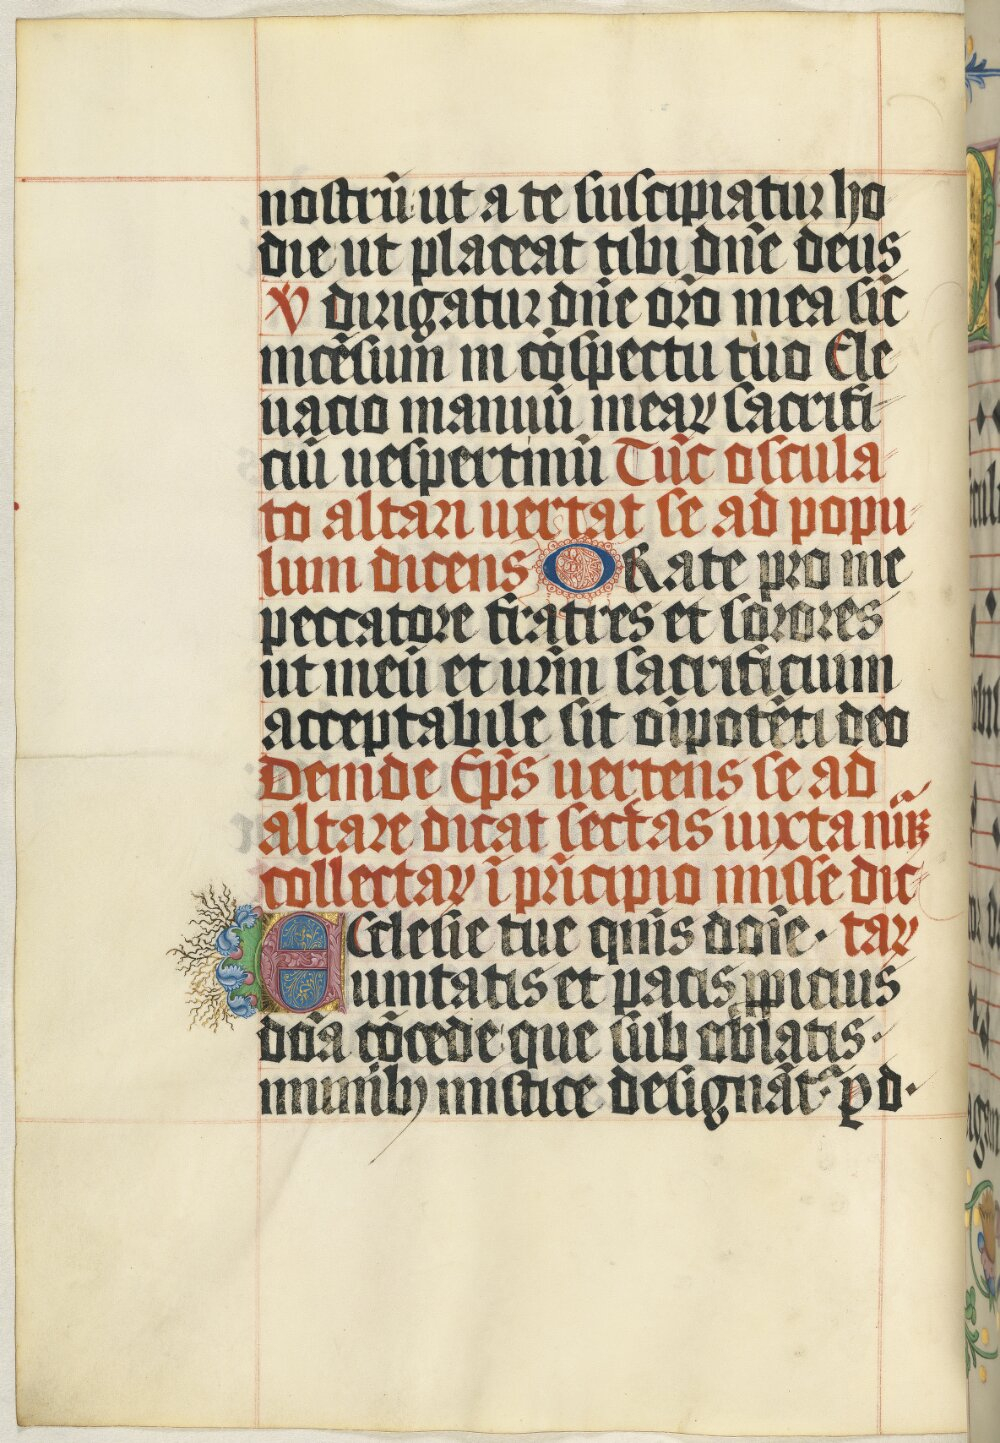 nostrū ut a te suscipiatur ho
die ut placeat tibi dn̄e deus
V̄ dirigatur dn̄e or̄o mea sic̄
incēsum in cōspectu tuo Ele
uatio manuū meaꝝ sacrifi-
ciū uespertinū Tūc oscula
to altari uertat se ad popu-
lum dicens ORate pro me
peccatore fratres et sorores
ut meū et ur̄m sacrificium
acceptabile sit oīpotēti deo
Deinde Ep̄s uertens se ad
altare dicat secretas iuxta
collectaꝝ ī prīcipio misse dic
ECclesie tue quīs dōie· taꝝ
unitatis et pacis ꝓpicius
dōa cōcede que sub oblatis·
munīibꝫ mistice designāt· ꝑ d·